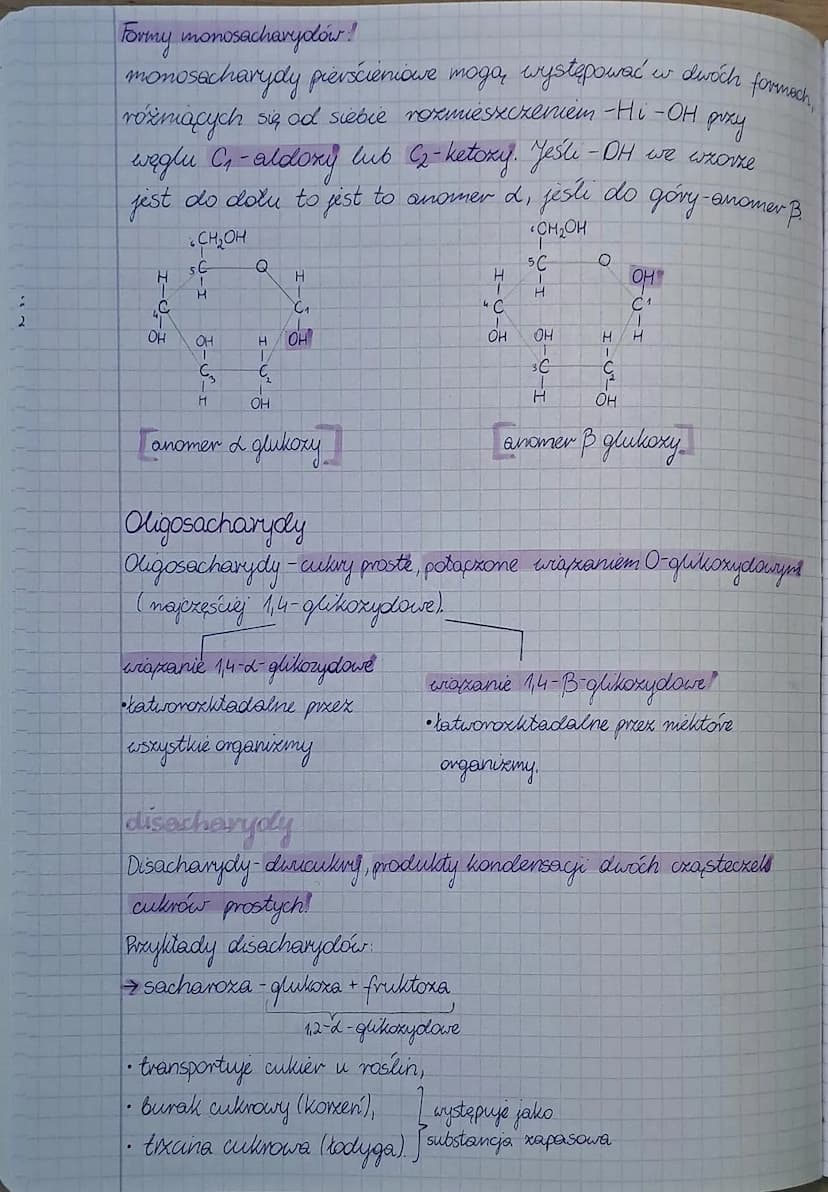 Formy monosacharydów!
monosacharydy pierścieniowe mogą występować w dwóch formach,
różniących się od siebie rozmieszczeniem -H i -OH przy
węglu C₁-aldozy lub C₂-ketozy. Jeśli -OH we wzorze
jest do dołu to jest to anomer α, jeśli do góry-anomer β.
₆CH₂OH
5C O
H H H
4C C₁
OH OH H OH
C₃ C₂
H OH
[anomer α glukozy]
⁶CH₂OH
5C O OH
H H
4C C¹
OH OH H H
3C C₂
H OH
[anomer β glukozy]
Oligosacharydy
Oligosacharydy - cukry proste, połączone wiązaniem O-glikozydowym
(najczęściej 1,4-glikozydowe).
wiązanie 1,4-α-glikozydowe
•łatworozkładalne przez
wszystkie organizmy
wiązanie 1,4-β-glikozydowe!
•łatworozkładalne przez niektóre
organizmy.
disacharydy
Disacharydy- dwucukry, produkty kondensacji dwóch cząsteczek
cukrów prostych!
Przykłady disacharydów:
→ sacharoza - glukoza + fruktoza
1,2-α-glikozydowe
• transportuje cukier u roślin,
• burak cukrowy (korzeń),
• trzcina cukrowa (łodyga).
występuje jako
substancja zapasowa